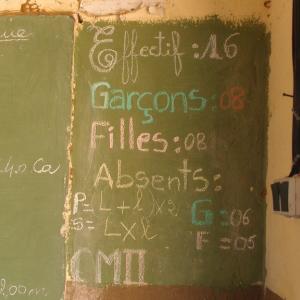 Effectif : 16
Garçons : 08
Filles : 08
Absents :
P = (L + l) x 2
S = L x l
G : 06
F = 05
CMII